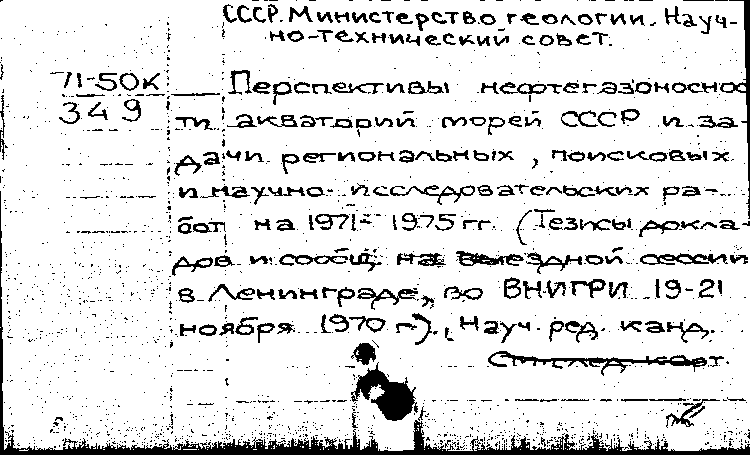 СССР. Министерство геологии. Науч-
но-технический совет.
71-50к
349
Перспективы нефтегазоноснос
ти акваторий морей СССР и за-
дачи региональных, поисковых
и научно-исследовательских ра-
бот на 1971-1975 гг. (Тезисы докла-
дов и сообщ. на выездной сессии
в Ленинграде, во ВНИГРИ 19-21
ноября 1970 г.)., Науч. ред. канд.
См. след. карт.